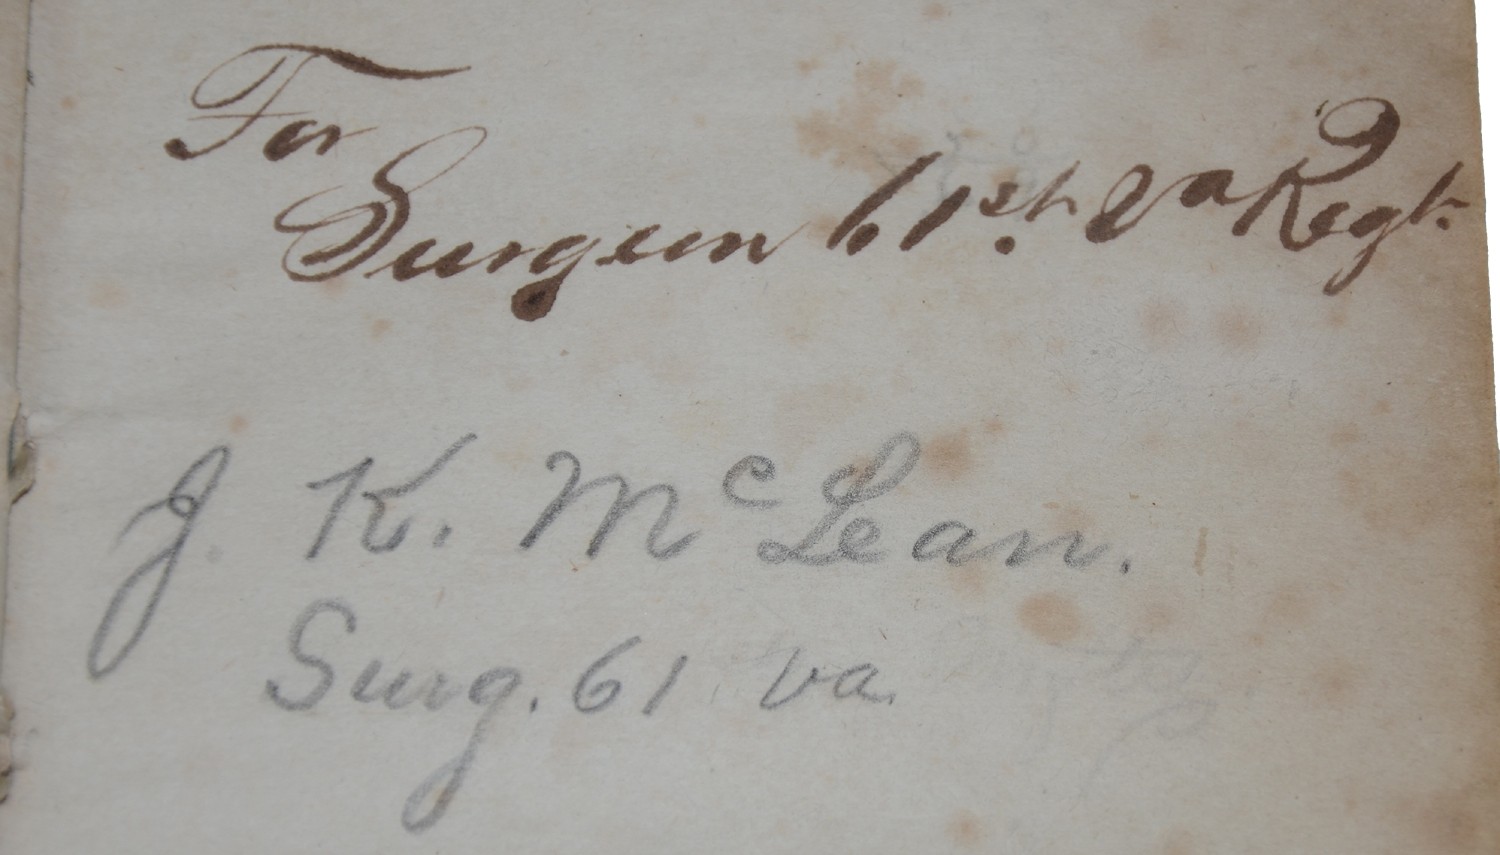 For
Surgeon 61st. Va Regt.
J. K. McLean.
Surg. 61 Va.